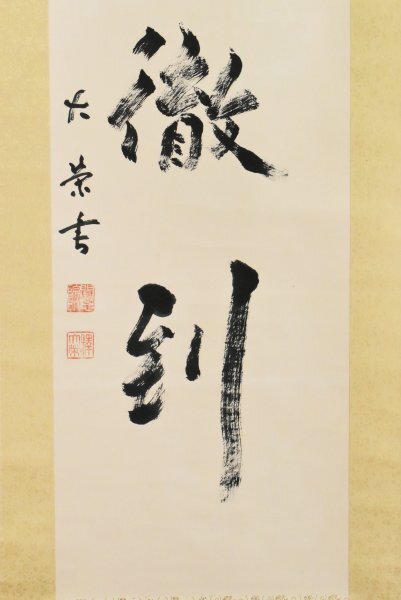 徹到
大榮書